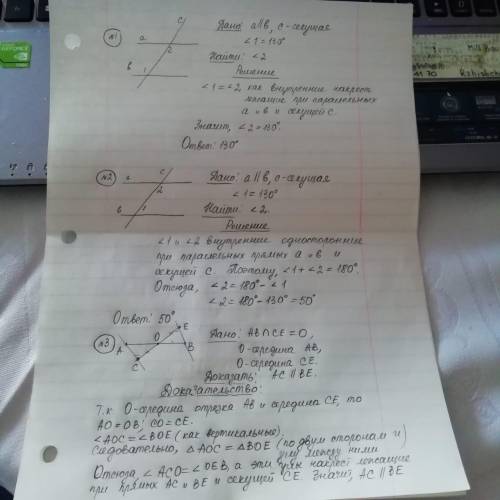 №1
c
a
2
b
1
Дано: a∥b, c-секущая
∠1=130°
Найти: ∠2
Решение
∠1=∠2, как внутренние накрест
лежащие при параллельных
a и b и секущей c.
Значит, ∠2=130°.
Ответ: 130°
№2
a
c
2
b
1
Дано: a∥b, c-секущая
∠1=130°
Найти: ∠2.
Решение
∠1 и ∠2 внутренние односторонние
при параллельных прямых a и b и
секущей c. Поэтому, ∠1+∠2=180°.
Отсюда, ∠2=180°-∠1
∠2=180°-130°=50°
Ответ: 50°
№3
E
O
A
B
C
Дано: AB∩CE=O,
O-середина AB,
O-середина CE.
Доказать: AC∥BE.
Доказательство:
Т.к O-середина отрезка AB и середина CE, то
AO=OB; CO=OE.
∠AOC=∠BOE (как вертикальные).
Следовательно, △AOC=△BOE (по двум сторонам и
углу между ними
Отсюда ∠ACO=∠OEB, а эти углы накрест лежащие
при прямых AC и BE и секущей CE. Значит, AC∥BE
GEFORCE